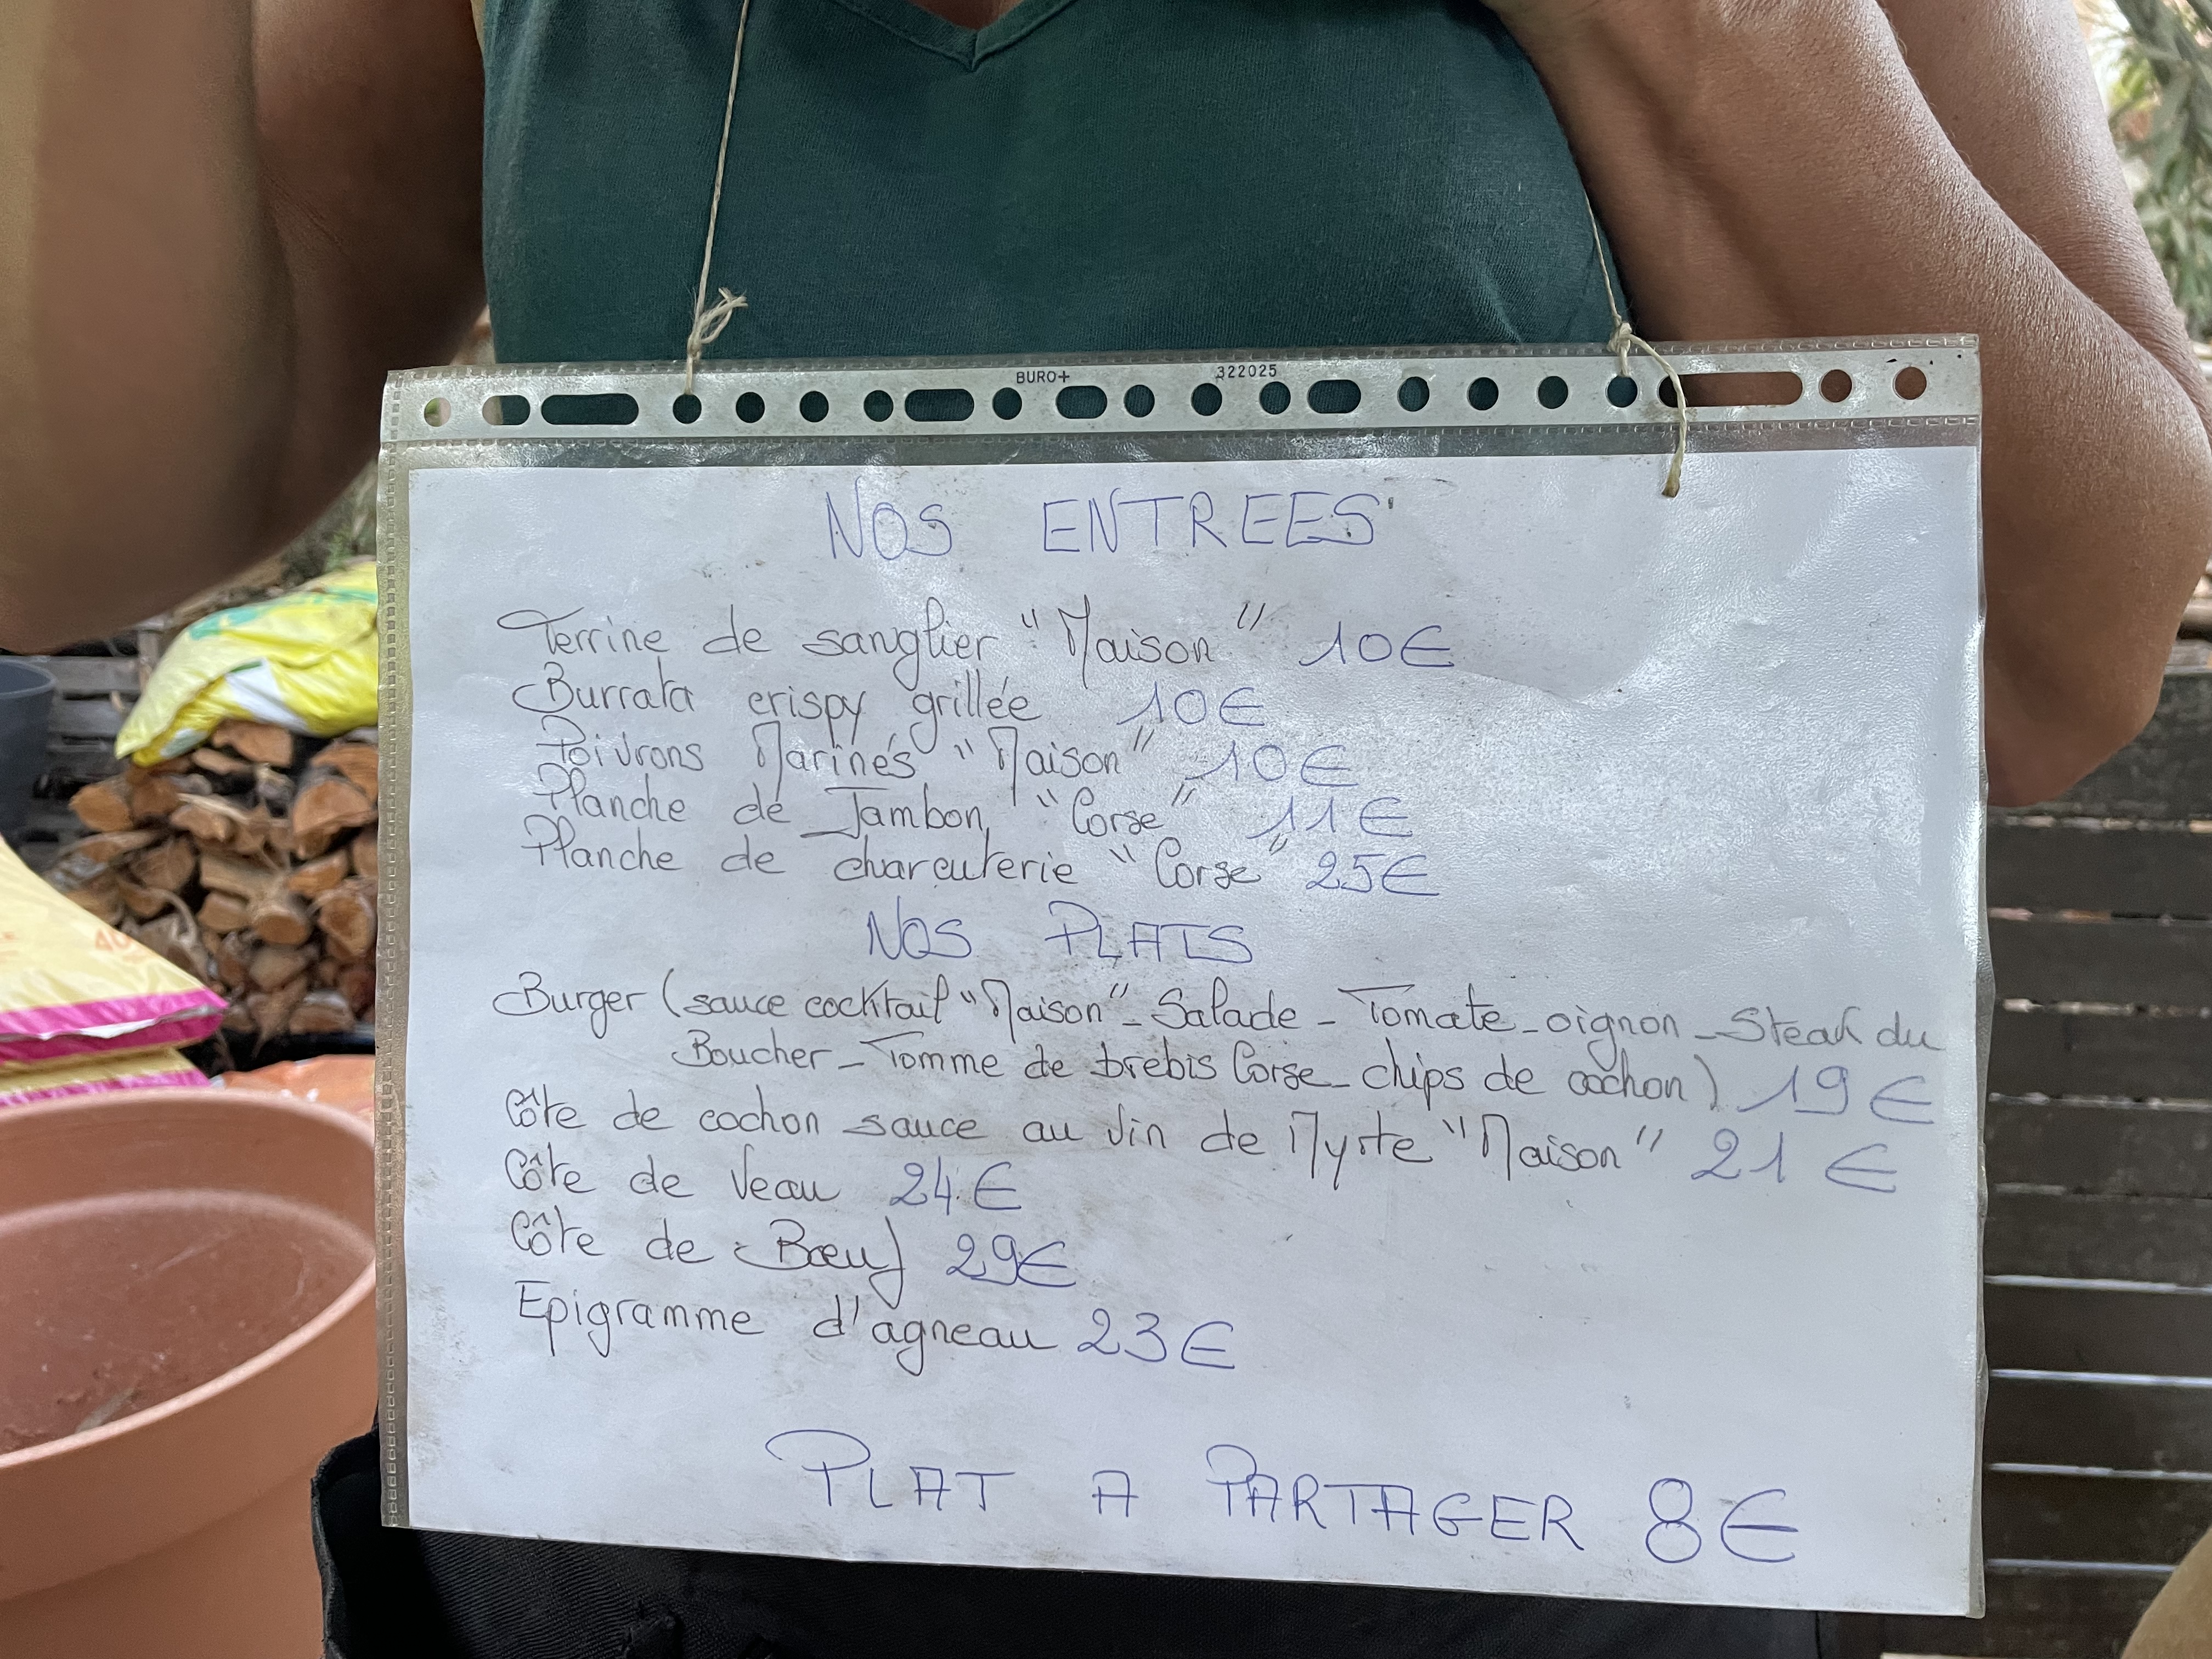 BURO+ 322025
NOS ENTREES
Terrine de sanglier "Maison" 10€
Burrata crispy grillée 10€
Poivrons Marinés "Maison" 10€
Planche de Jambon "Corse" 11€
Planche de charcuterie "Corse" 25€
NOS PLATS
Burger (sauce cocktail "Maison" - Salade - Tomate - oignon - Steak du
Boucher - Tomme de brebis Corse - chips de cochon) 19€
Côte de cochon sauce au vin de Myrte "Maison" 21€
Côte de Veau 24€
Côte de Bœuf 29€
Epigramme d'agneau 23€
PLAT A PARTAGER 8€